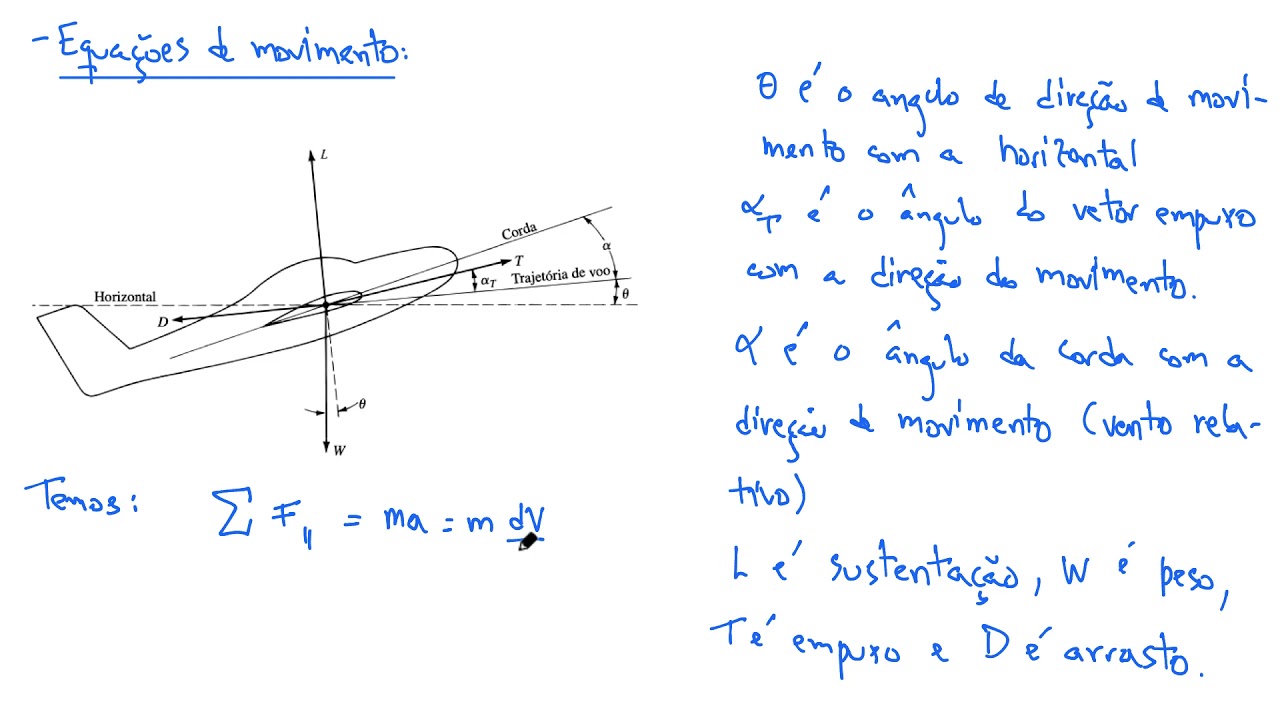 - Equações de movimento:
L
Corda
α
T
α_T
Trajetória de voo
θ
Horizontal
D
θ
W
Temos: ∑ F_∥ = ma = m dV
θ é o angulo de direção de movi-
mento com a horizontal
α_T é o ângulo do vetor empuxo
com a direção do movimento.
α é o ângulo da corda com a
direção de movimento (vento rela-
tivo)
L é sustentação, W é peso,
T é empuxo e D é arrasto.